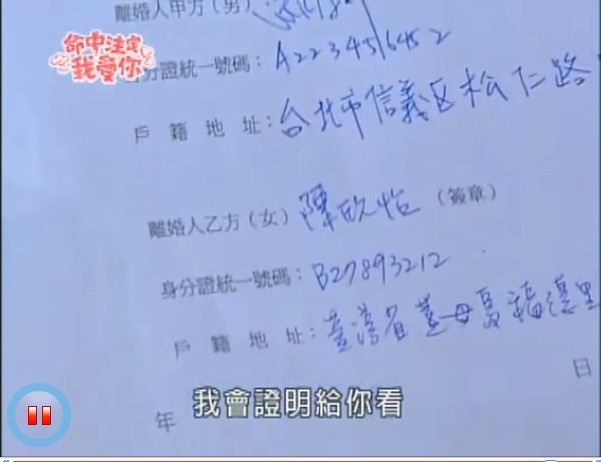 離婚人甲方（男）
命中注定
我愛你
身分證統一號碼：A2234516452
戶籍地址：台北市信義区松仁路
離婚人乙方（女）陳欣怡（簽章）
身分證統一號碼：B27893212
戶籍地址：臺灣省薑母島福德里
日
年
我會證明給你看